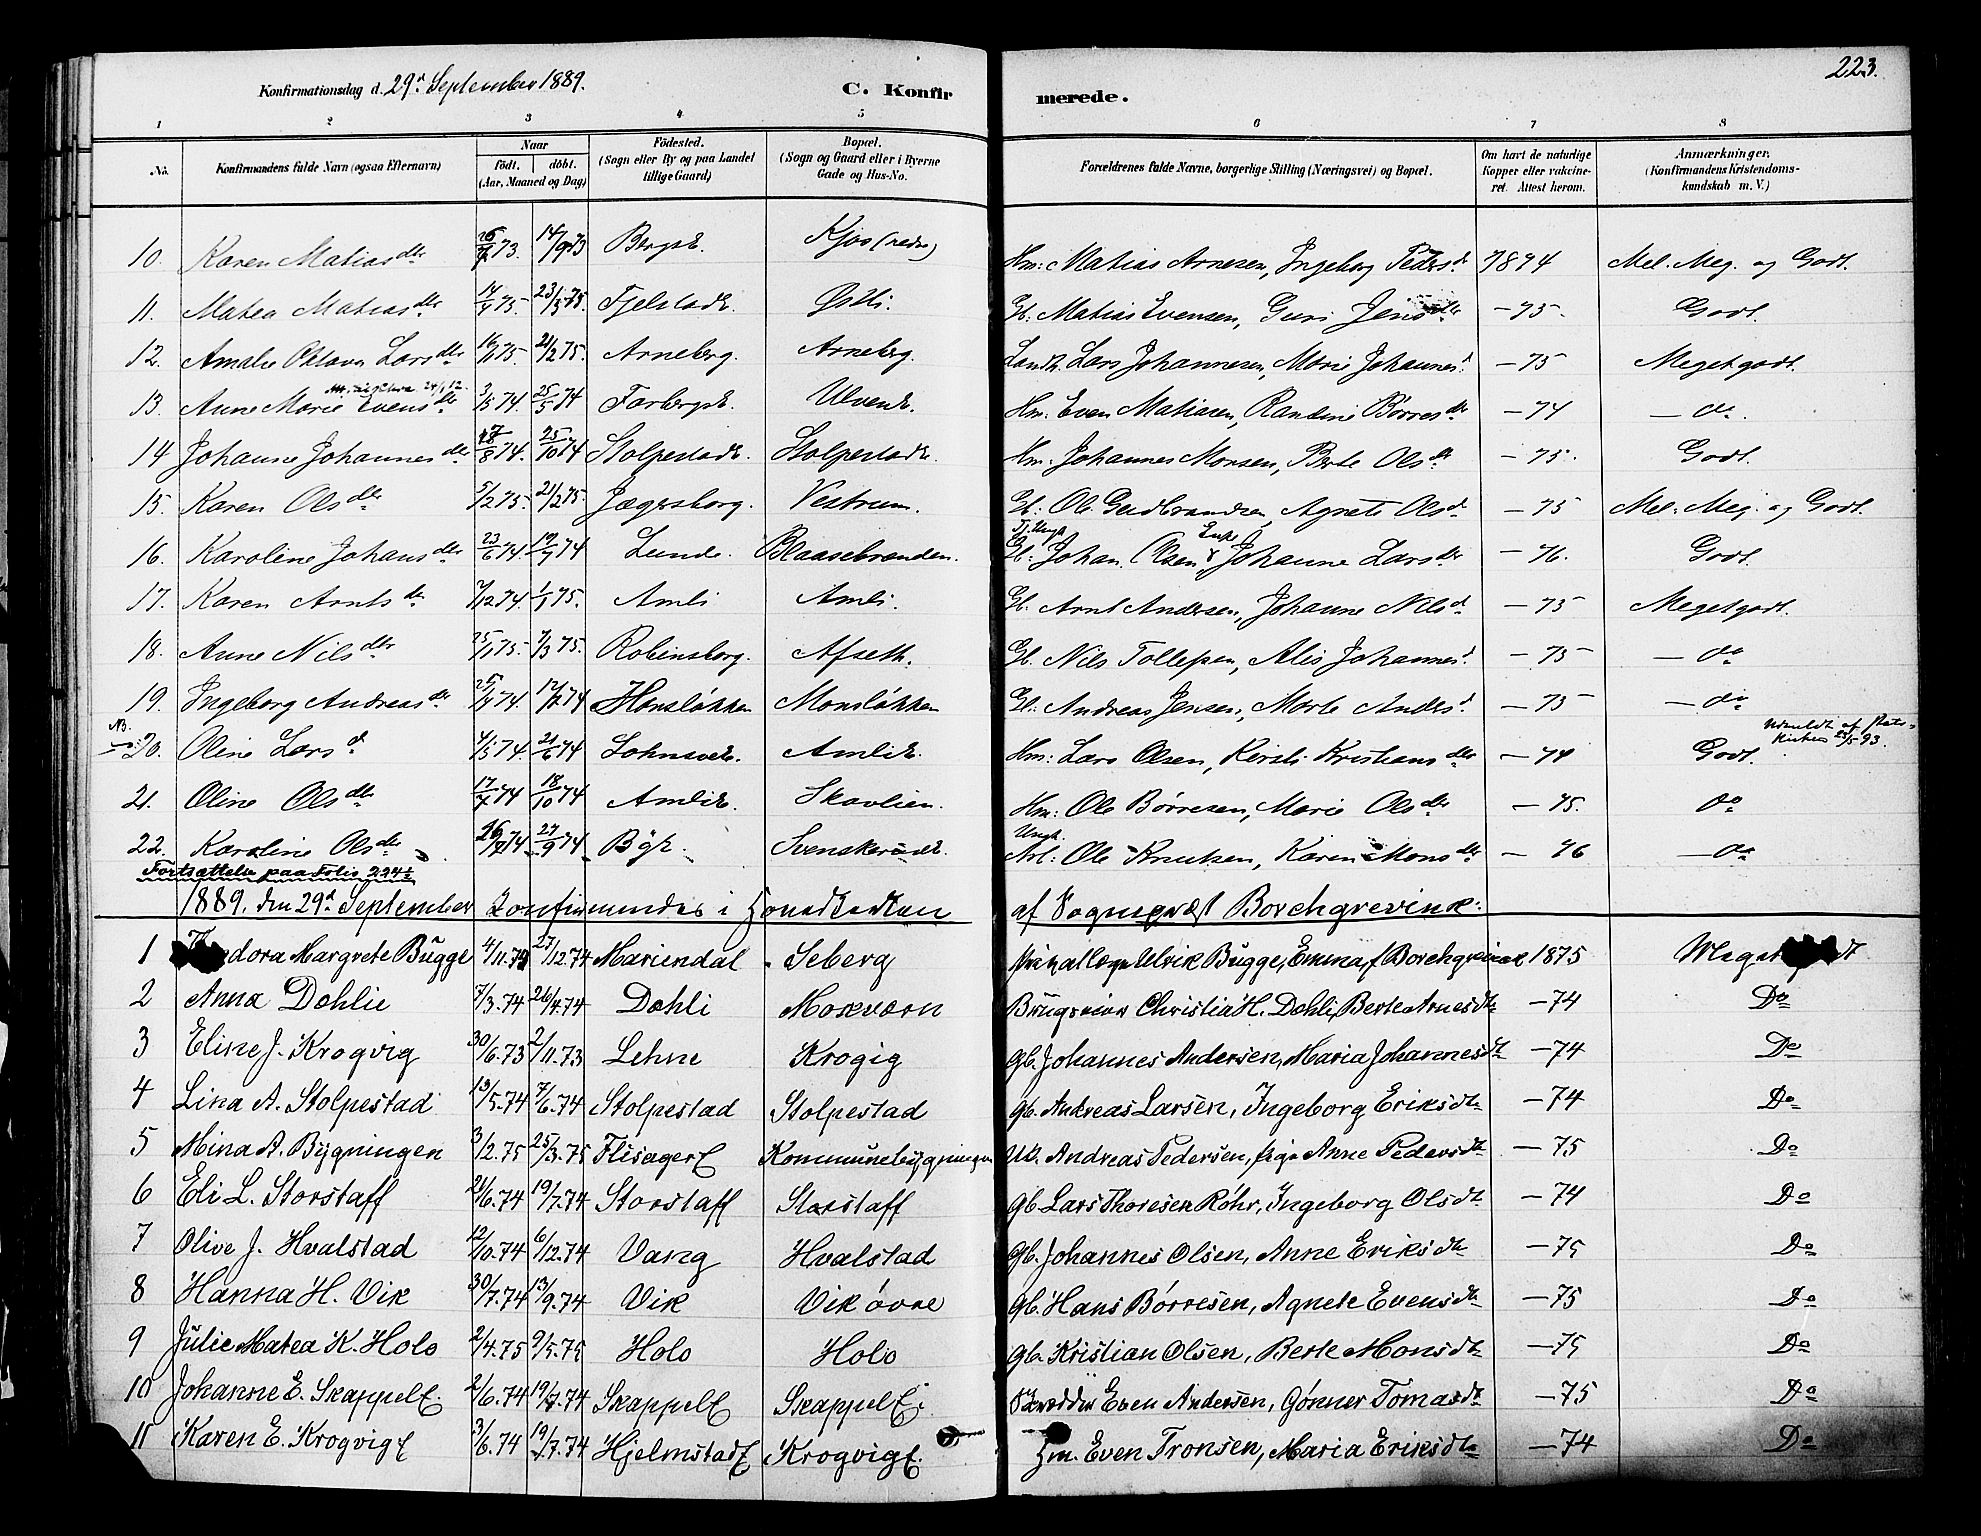 223.
Konfirmationsdag d. 29d September 1889. C. Konfirmerede.
1 2 3 4 5 6 7 8
No. Konfirmandens fulde Navn (ogsaa Efternavn) Naar født. døbt. (Aar, Maaned og Dag) Fødested. (Sogn eller By og paa Landet tillige Gaard) Bopæl. (Sogn og Gaard eller i Byerne Gade og Hus-No. Forældrenes fulde Navne, borgerlige Stilling (Næringsvei) og Bopæl. Om havt de naturlige Kopper eller vakcineret. Attest herom. Anmærkninger. (Konfirmandens Kristendomskundskab m. V.)
10. Karen Matiasdtr 73. 14/9 73 BergsE. Kjos (nedre) Hm: Matias Arnesen, Ingeborg Pedersd. 1874 Mel. Meg. og Godt.
11. Matea Matiasdtr 75. 23/5 75. FjelstadE Østli. Gb. Matias Evensen, Guri Jensdtr — 75. Godt.
12. Amalie Oktava Larsdtr 16/1 75. 21/2 75. Arneberg. Arneberg. Landh. Lars Johannesen, Marie Johannesd. — 75 Meget godt.
13. Anne Marie Evensdtr 3/5 74. 25/5 74 FarbergsE. UlvenE. Hm: Even Matiasen, Randine Børresdtr — 74 — do.
14 Johanne Johannesdtr /8 74. 25/10 74 StolpestadE. StolpestadE. Hm. Johannes Monsen, Berte Olsdtr — 75. Godt.
15. Karen Olsdtr 5/2 75. 21/2 75. Jægersborg. Vestrum. Gb: Ole Gudbrandsen, Agnete Olsd — 75 Mel. Meg. og Godt.
16. Karoline Johansdtr 23/6 74. 19/7 74 Lunde. Blaasebranden. Gb. Johan Olsen & Enke Johanne Larsdtr — 76. Godt.
17. Karen Arntsdtr 7/12 74. 1/1 75. Amli Amli. Gb. Arnt Andersen, Johanne Nilsd. — 75 Meget godt.
18. Anne Nilsdtr 25/1 75. 7/3 75. Robinsborg. Afseth. Gb. Nils Tollefsen, Alis Johannesd. — 75 — do
19. Ingeborg Andreasdtr 74. 74 Honsløkken Monsløkken Gb. Andreas Jensen, Marte Andersd. — 75 — do
NB. 20. Oline Larsd 4/5 74. 21/6 74 LohnsveE. AmliE. Hm: Lars Olsen, Kirsti Kristiansdtr — 74 Godt. Udmeldt af Statskirken 25/5 93.
21. Oline Olsdtr 17/7 74 18/10 74 AmliE. Skavlien. Hm: Ole Børresen, Marie Olsdtr — 75. do
22. Karoline Olsdtr 74 27/9 74 BýE. SvenskerudE. Ungk. Arb: Ole Knutsen, Karen Monsdtr — 76 — do
Fortsættelse paa Folio 224½
1889, den 29d September Konfirmeredes i Hovedkirken af Sognepræst Borchgrevink:
1 Theodora Margrete Bugge 4/11.74 27/12.74 Mariendal Seberg Privatlæge Ulrik Bugge, Emma f Borchgrevink 1875 Meget godt
2 Anna Dæhlie 7/3.74 26/4.74 Dæhli Moskværn Brugseier Christia H. Dæhli, Berte Arnesdtr — 74 Do
3 Eline J. Krogvig 30/6.73 2/11.73 Lehne Krogig gb. Johannes Andersen, Maria Johannesdtr — 74 Do
4 Lina A. Stolpestad 13/5.74 7/6.74 Stolpestad Stolpestad gb. Andreas Larsen, Ingeborg Eriksdtr — 74 Do
5 Mina A. Bygningen 3/2.75 25/3.75 FlisagerE Kommunebygningen Uk. Andreas Pedersen, pige Anne Pedersdtr — 75 Do
6 Eli L. Storstaff 21/6.74 19/7.74 Storstaff Storstaff gb. Lars Thoresen Røhr, Ingeborg Olsdtr — 74 Do
7 Olive J. Hvalstad 12/10.74 6/12.74 Vang Hvalstad gb. Johannes Olsen, Anne Eriksdtr — 75 Do
8 Hanna H. Vik 30/7.74 13/9.74 Vik Vik øvre gb. Hans Børresen, Agnete Evensdtr — 75 Do
9 Julie Matea K. Holo 2/4.75 9/5.75 Holo Holo gb. Kristian Olsen, Berte Monsdtr — 75 Do
10 Johanne E. SkappelE. 2/6.74 19/7.74 SkappelE SkappelE. Skrædder Even Andersen, Gønner Tomasdtr — 75 Do
11 Karen E. KrogvigE 3/6.74 19/7.74 HjelmstadE KrogvigE. Hm. Even Tronsen, Maria Eriksdtr — 74 Do